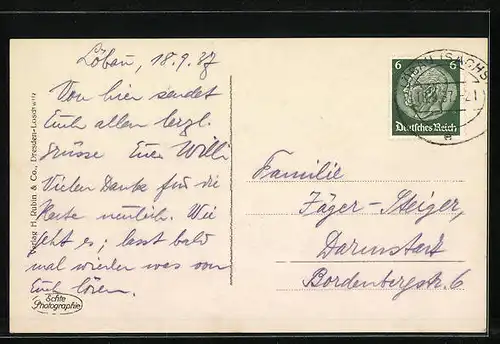 Löbau, 18.9.37
Von hier sendet
Euch allen herzl.
Grüsse Euer Willi
Vielen Dank für die
Karte neulich. Wie
geht es; lasst bald
mal wieder was von
Euch hören.
Echte
Photographie
Verlag H. Rubin & Co., Dresden-Loschwitz
6 6
Deutsches Reich
LÖBAU (SACHS
Familie
Jäger-Steiger,
Darmstadt
Bordenbergstr. 6